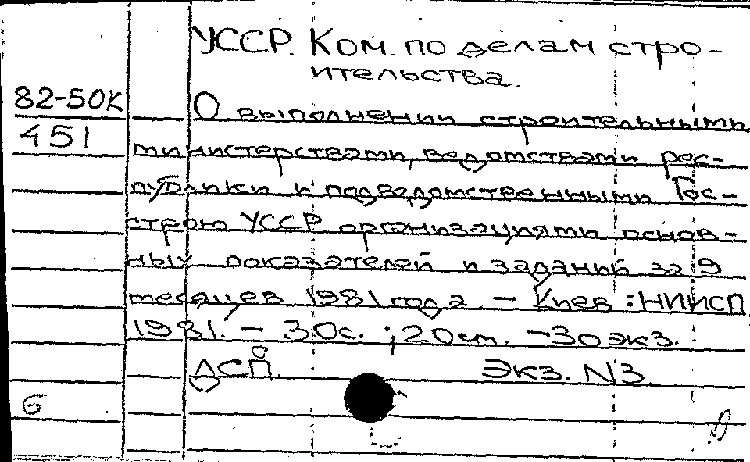 УССР. Ком. по делам стро-
ительства.
82-50К
451
О выполнении строительными
министерствами, ведомствами рес-
публики и подведомственными Гос-
строю УССР организациями основ-
ных показателей и заданий за 9
месяцев 1981 года. - Киев : НИИСП,
1981. - 30с. ; 20см. - 30 экз.
ДСП. Экз. N3.
6